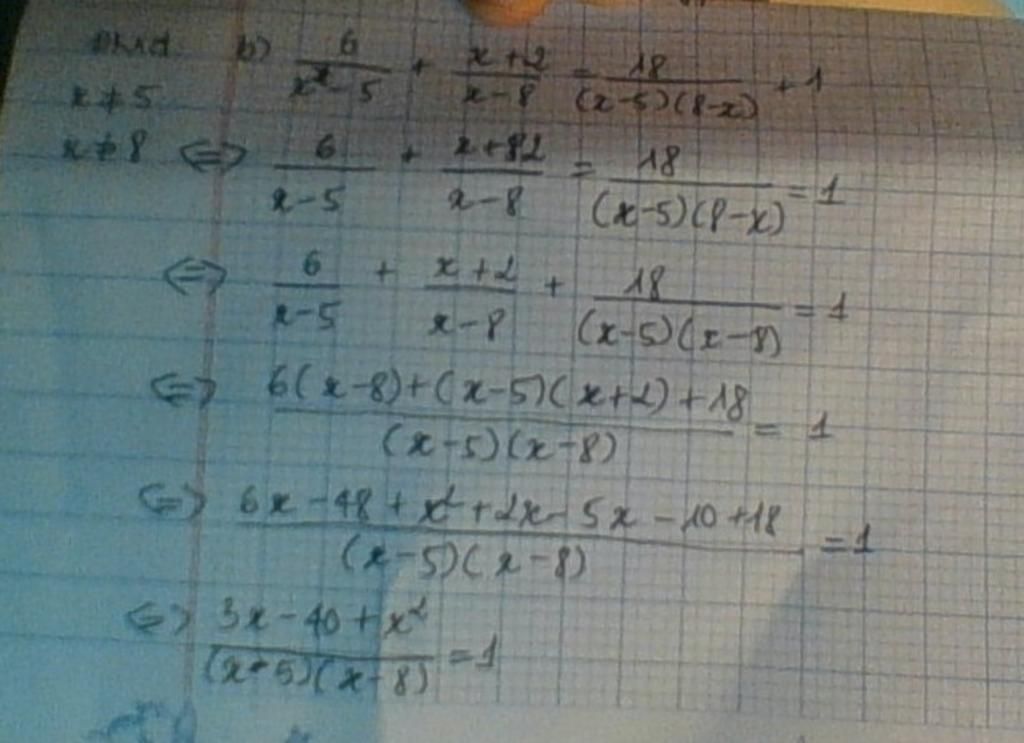 ĐKXĐ b) 6/(x-5) + (x+2)/(x-8) = 18/((x-5)(8-x)) + 1
x≠5
x≠8 <=> 6/(x-5) + (x+82)/(x-8) = 18/((x-5)(8-x)) = 1
<=> 6/(x-5) + (x+2)/(x-8) + 18/((x-5)(x-8)) = 1
<=> (6(x-8)+(x-5)(x+2)+18)/((x-5)(x-8)) = 1
<=> (6x-48+x²+2x-5x-10+18)/((x-5)(x-8)) = 1
<=> (3x-40+x²)/((x-5)(x-8)) = 1